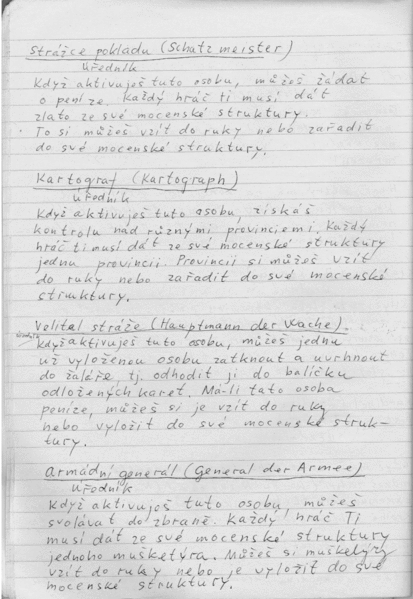 Strážce pokladu (Schatzmeister)
Úředník
Když aktivuješ tuto osobu, můžeš žádat
o peníze. Každý hráč ti musí dát
zlato ze své mocenské struktury.
To si můžeš vzít do ruky nebo zařadit
do své mocenské struktury.
Kartograf (Kartograph)
Úředník
Když aktivuješ tuto osobu, získáš
kontrolu nad různými provinciemi. Každý
hráč ti musí dát ze své mocenské struktury
jednu provincii. Provincii si můžeš vzít
do ruky nebo zařadit do své mocenské
struktury.
Velitel stráže (Hauptmann der Wache)
Úředník
Když aktivuješ tuto osobu, můžeš jednu
už vyloženou osobu zatknout a uvrhnout
do žaláře, tj. odhodit ji do balíčku
odložených karet. Má-li tato osoba
peníze, můžeš si je vzít do ruky
nebo vyložit do své mocenské struk-
tury.
Armádní generál (General der Armee)
Úředník
Když aktivuješ tuto osobu, můžeš
svolávat do zbraně. Každý hráč Ti
musí dát ze své mocenské struktury
jednoho mušketýra. Můžeš si mušketýry
vzít do ruky nebo je vyložit do své
mocenské struktury.